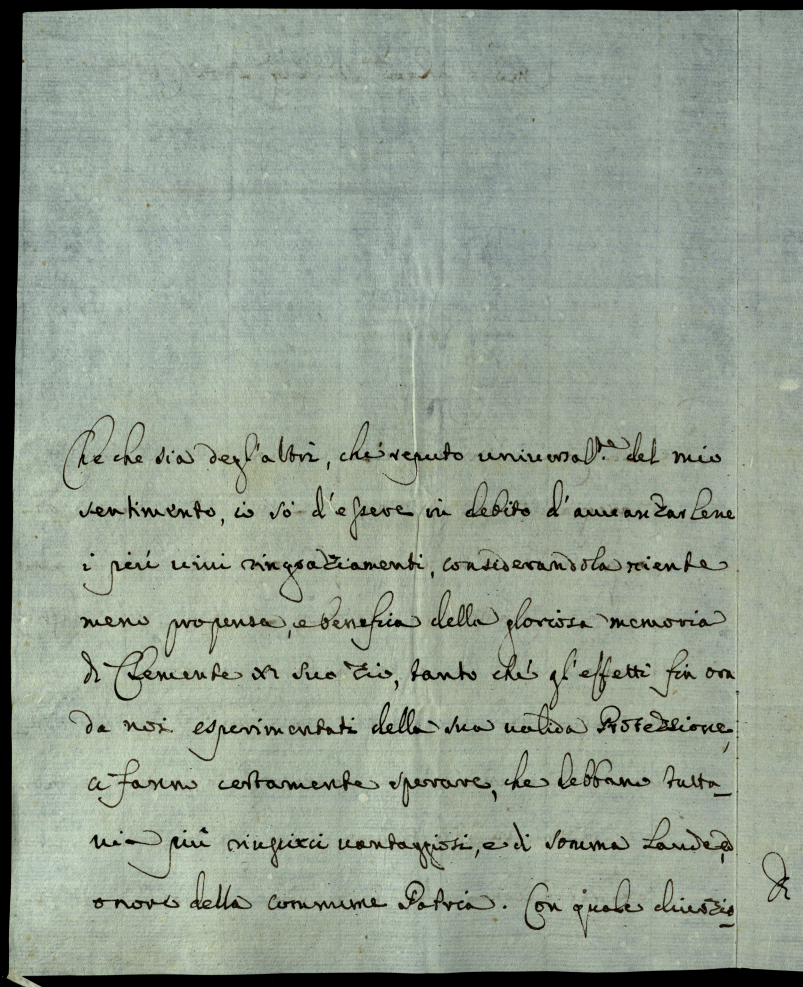 Che che sia degl'altri, ché reputo universal.te del mio
sentimento, io sò d'essere in debito d'avvanzarlene
i più vivi ringraziamenti, considerandola niente
meno propensa, e benefica della gloriosa memoria
di Clemente XI suo Zio, tanto ché gl'effetti fin ora
da noi esperimentati della sua valida Protezzione,
ci fanno certamente sperare, che debbano tutta_
via più riuscirci vantaggiosi, e di somma Laude, ed
onore della commune Patria. Con quale divozio_